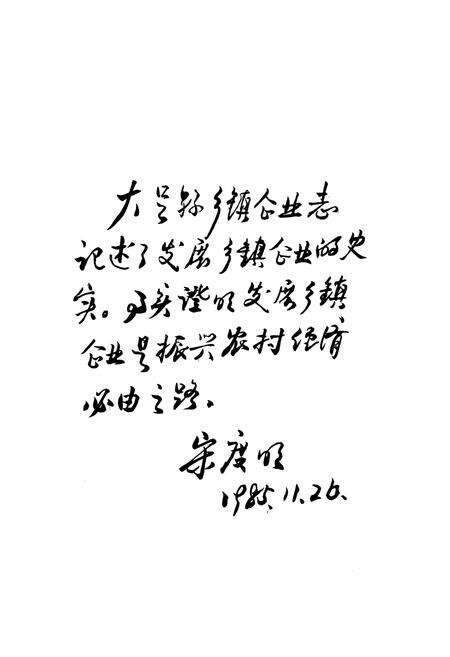 大县乡镇企业志
记述了发展乡镇企业的史
实。事实證明发展乡镇
企业是振兴农村经济
必由之路。
宋度明
1985.11.26.